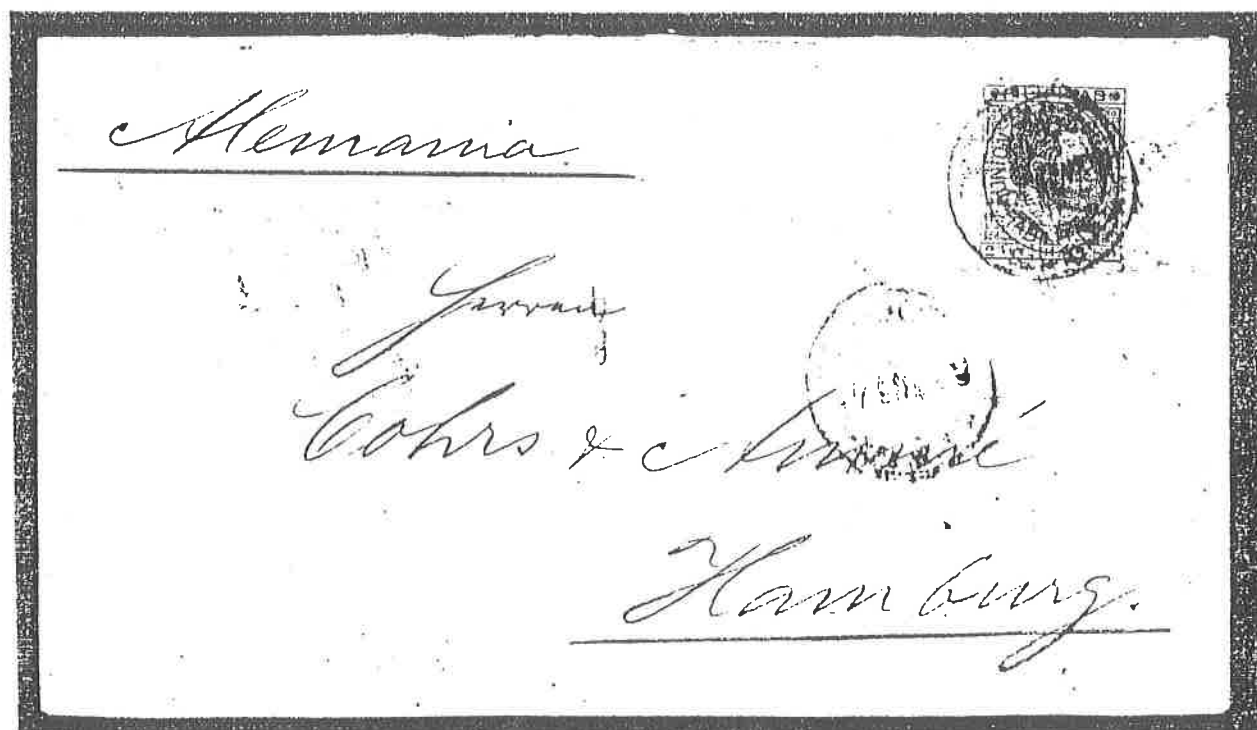 Alemania
Herren
Cohrs & Ammé
Hamburg.